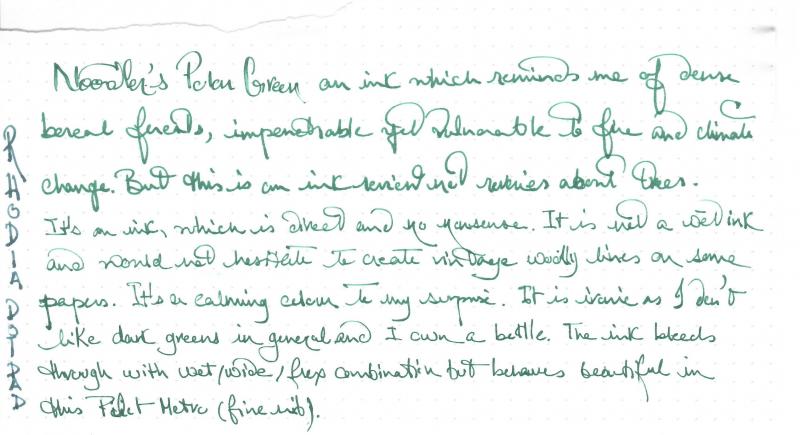 Noodler's Polar Green an ink which reminds me of dense
boreal forests, impenetrable yet vulnarable to fire and climate
change. But this is an ink review not reveries about trees.
It's an ink, which is direct and no nonsense. It is not a wet ink
and would not hesitate to create vintage woolly lines on some
papers. It's a calming colour to my surprise. It is ironic as I don't
like dark greens in general and I own a bottle. The ink bleeds
through with wet/wide/flex combination but behaves beautiful in
this Pilot Metro (fine nib).
RHODIA DOTPAD